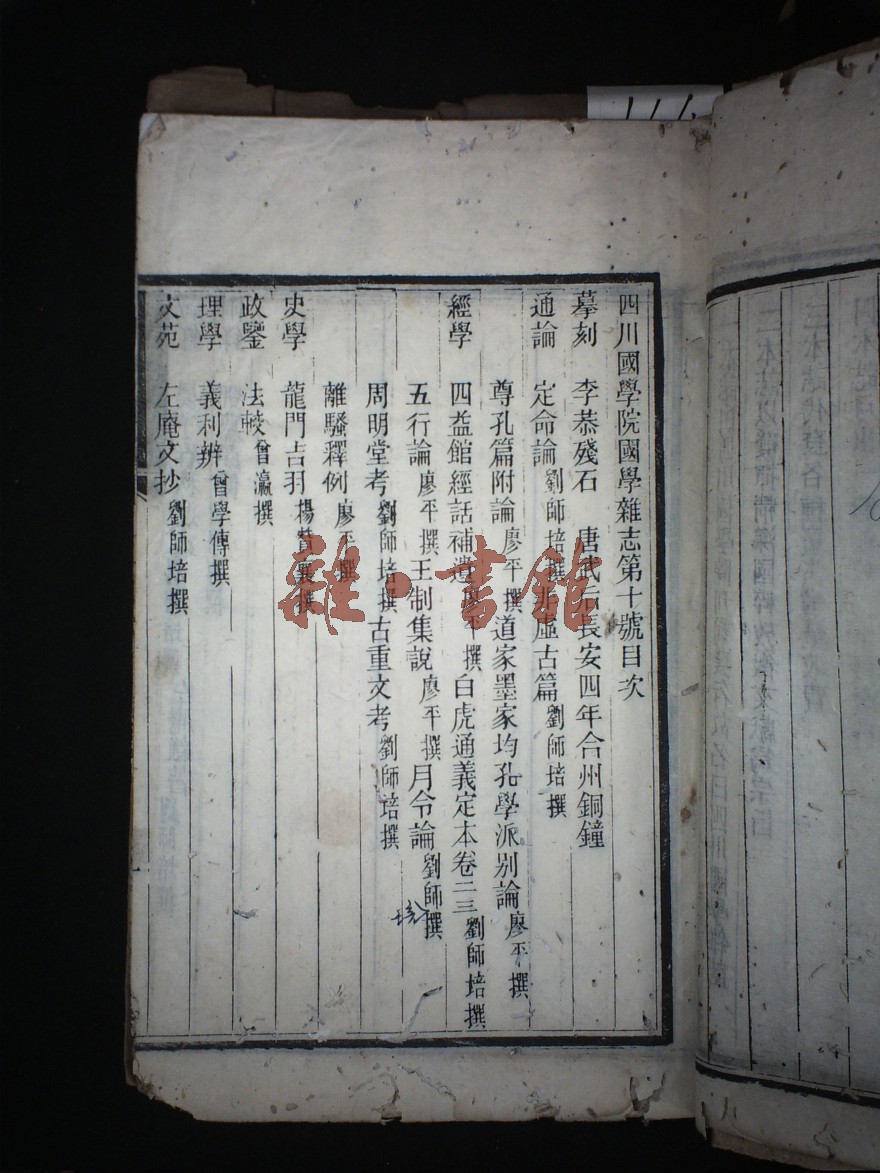 四川國學院國學雜志第十號目次
摹刻 李恭殘石 唐武后長安四年合州銅鐘
通論 定命論劉師培撰 非虛古篇劉師培撰
尊孔篇附論廖平撰 道家墨家均孔學派别論廖平撰
經學 四益館經話補遺廖平撰 白虎通義定本卷二三劉師培撰
五行論廖平撰 王制集說廖平撰 月令論劉師撰
培
周明堂考劉師培撰 古重文考劉師培撰
離騷釋例廖平撰
史學 龍門吉羽楊贊襄撰
政鑒 法較曾瀛撰
理學 義利辨曾學傳撰
文苑 左庵文抄劉師培撰
雜·書館